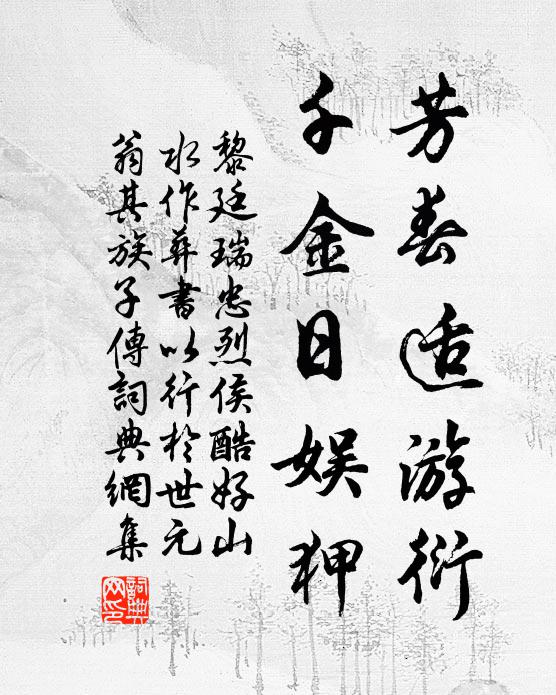 芳春适游衍
千金日娱狎
黎廷瑞忠烈侯酷好山
水作彝書以行於世元
翁其族子傳詞典網集